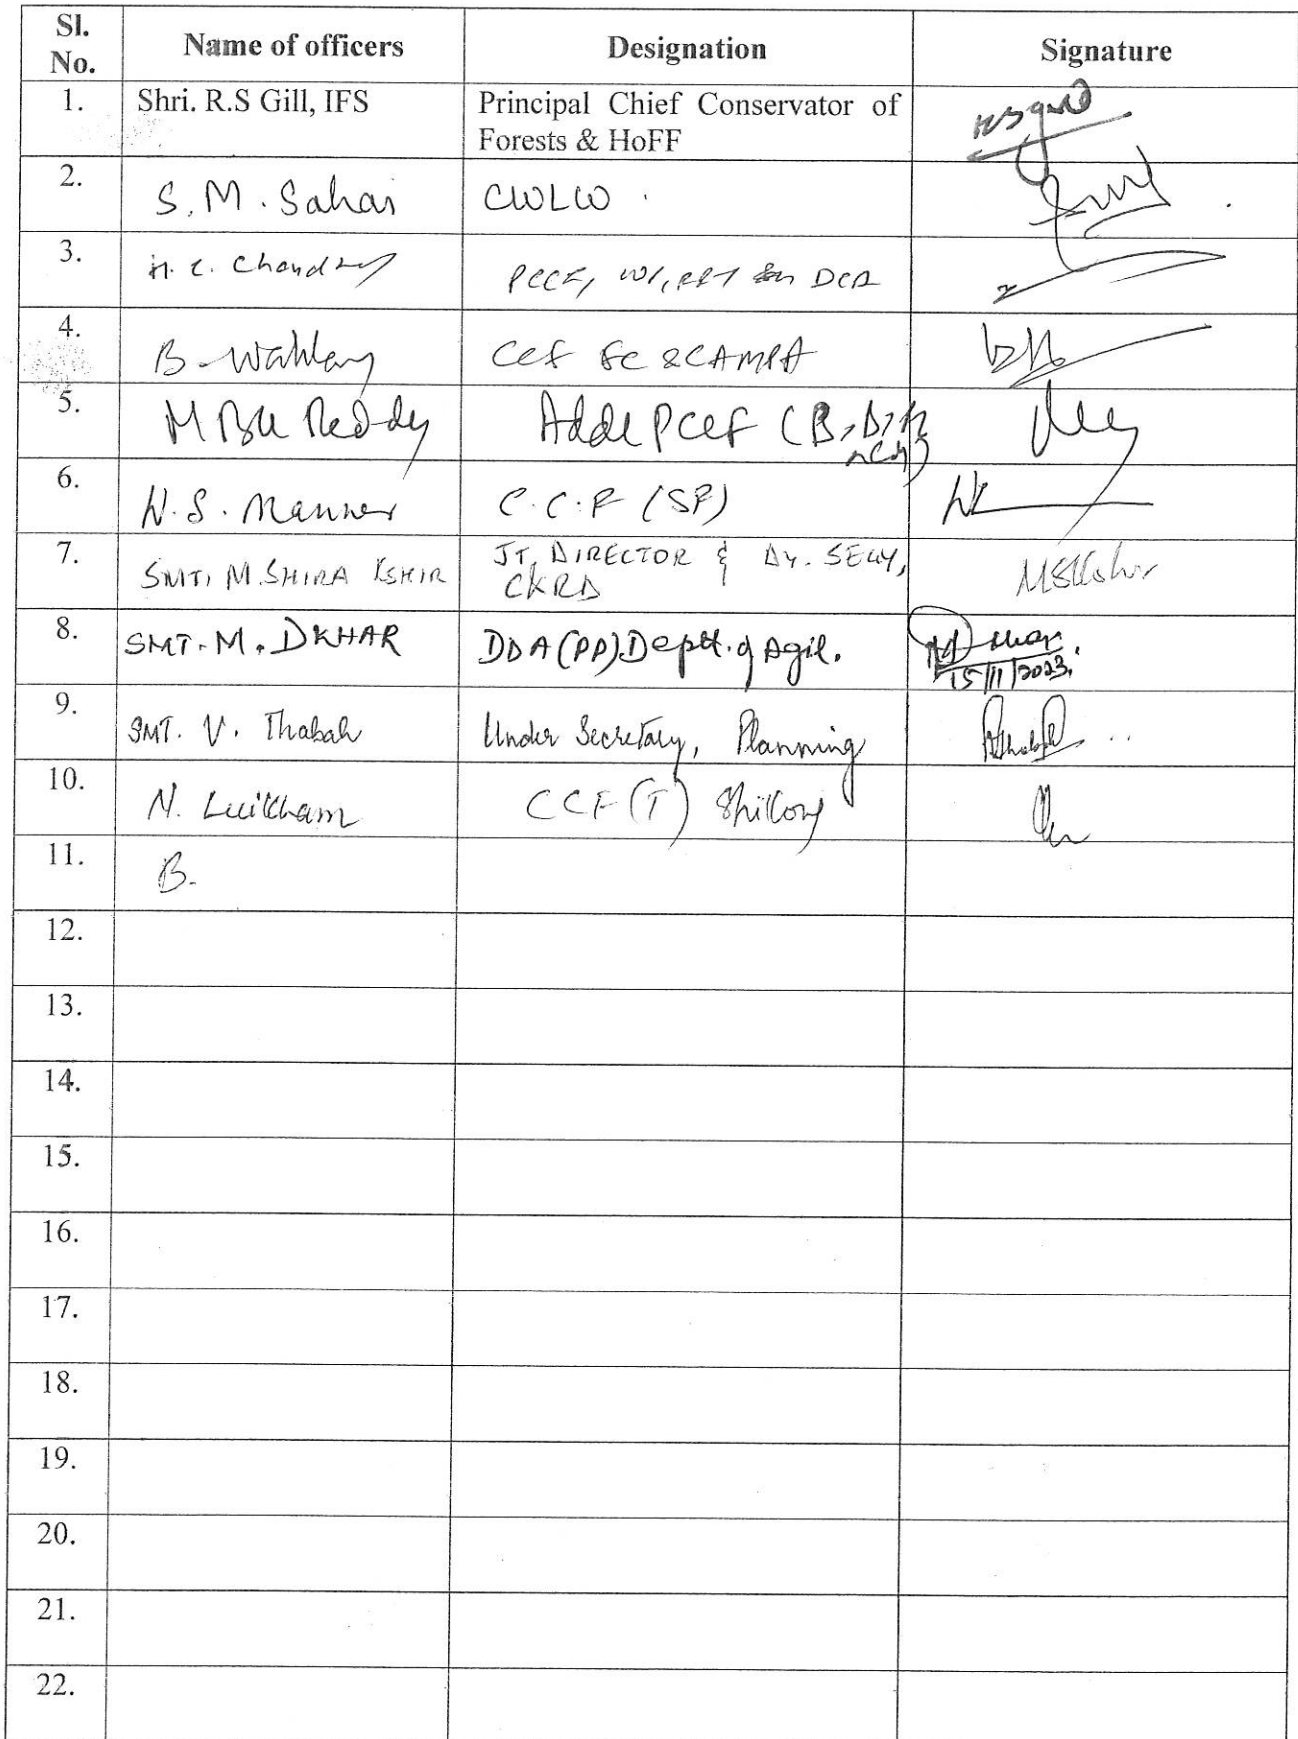 Sl. No. Name of officers Designation Signature
1. Shri. R.S Gill, IFS Principal Chief Conservator of
Forests & HoFF
2. S. M. Sahai CWLW
3. H. C. Chaudhary PCCF,
4. B. Wahlang CCF FC & CAMPA
5. M BK Reddy Addl PCCF (B, D,
6. W. S. Manner C.C.F (SF)
7. SMTI M. SHIRA KSHIR JT. DIRECTOR & DY. SECY,
C&RD
8. SMT. M. DKHAR DDA (PP). Deptt. of Agil. 15/11/2023.
9. SMT. V. Thabah Under Secretary, Planning
10. N. Luikham CCF (T) Shillong
11. B.
12.
13.
14.
15.
16.
17.
18.
19.
20.
21.
22.